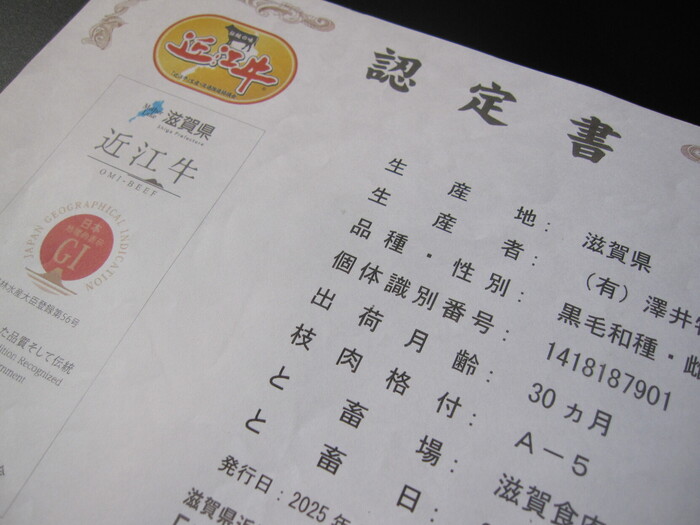 近江牛
認定書
滋賀県
Shiga Prefecture
近江牛
OMI-BEEF
JAPAN GEOGRAPHICAL INDICATION
日本
地理的表示
GI
林水産大臣登録第56号
た品質そして伝統
dition Recognized
ernment
生産地: 滋賀県
生産者: (有) 澤井牧
品種・性別: 黒毛和種・雌
個体識別番号: 1418187901
出荷月齢: 30ヵ月
枝肉格付: A-5
と畜場: 滋賀食肉
と畜日:
発行日:2025年
滋賀県近